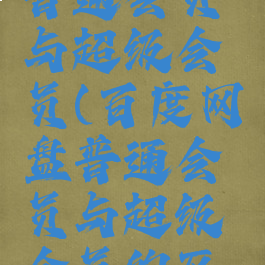 普通会员
与超级会
员(百度网
盘普通会
员与超级
会员的区